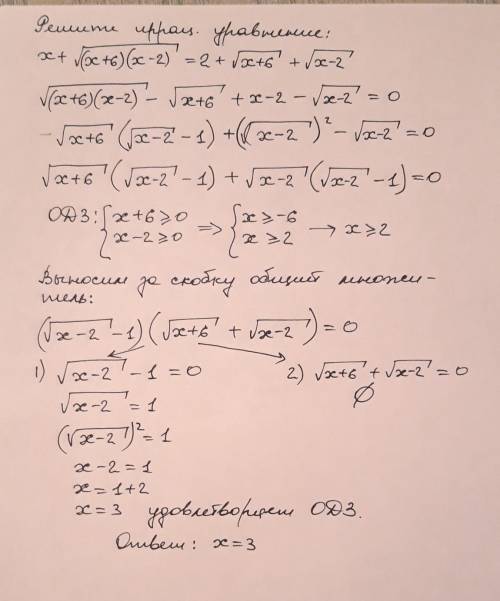 Решите иррац. уравнение:
x + √(x+6)(x-2) = 2 + √x+6 + √x-2
√(x+6)(x-2) - √x+6 + x-2 - √x-2 = 0
√x+6 (√x-2 - 1) + (√x-2)² - √x-2 = 0
√x+6 (√x-2 - 1) + √x-2 (√x-2 - 1) = 0
ОДЗ: { x+6 ≥ 0 => { x ≥ -6
x-2 ≥ 0 x ≥ 2 → x ≥ 2
Выносим за скобку общий множи-
тель:
(√x-2 - 1)(√x+6 + √x-2) = 0
1) √x-2 - 1 = 0 2) √x+6 + √x-2 = 0
√x-2 = 1 ∅
(√x-2)² = 1
x-2 = 1
x = 1+2
x = 3 удовлетворяет ОДЗ.
Ответ: x = 3